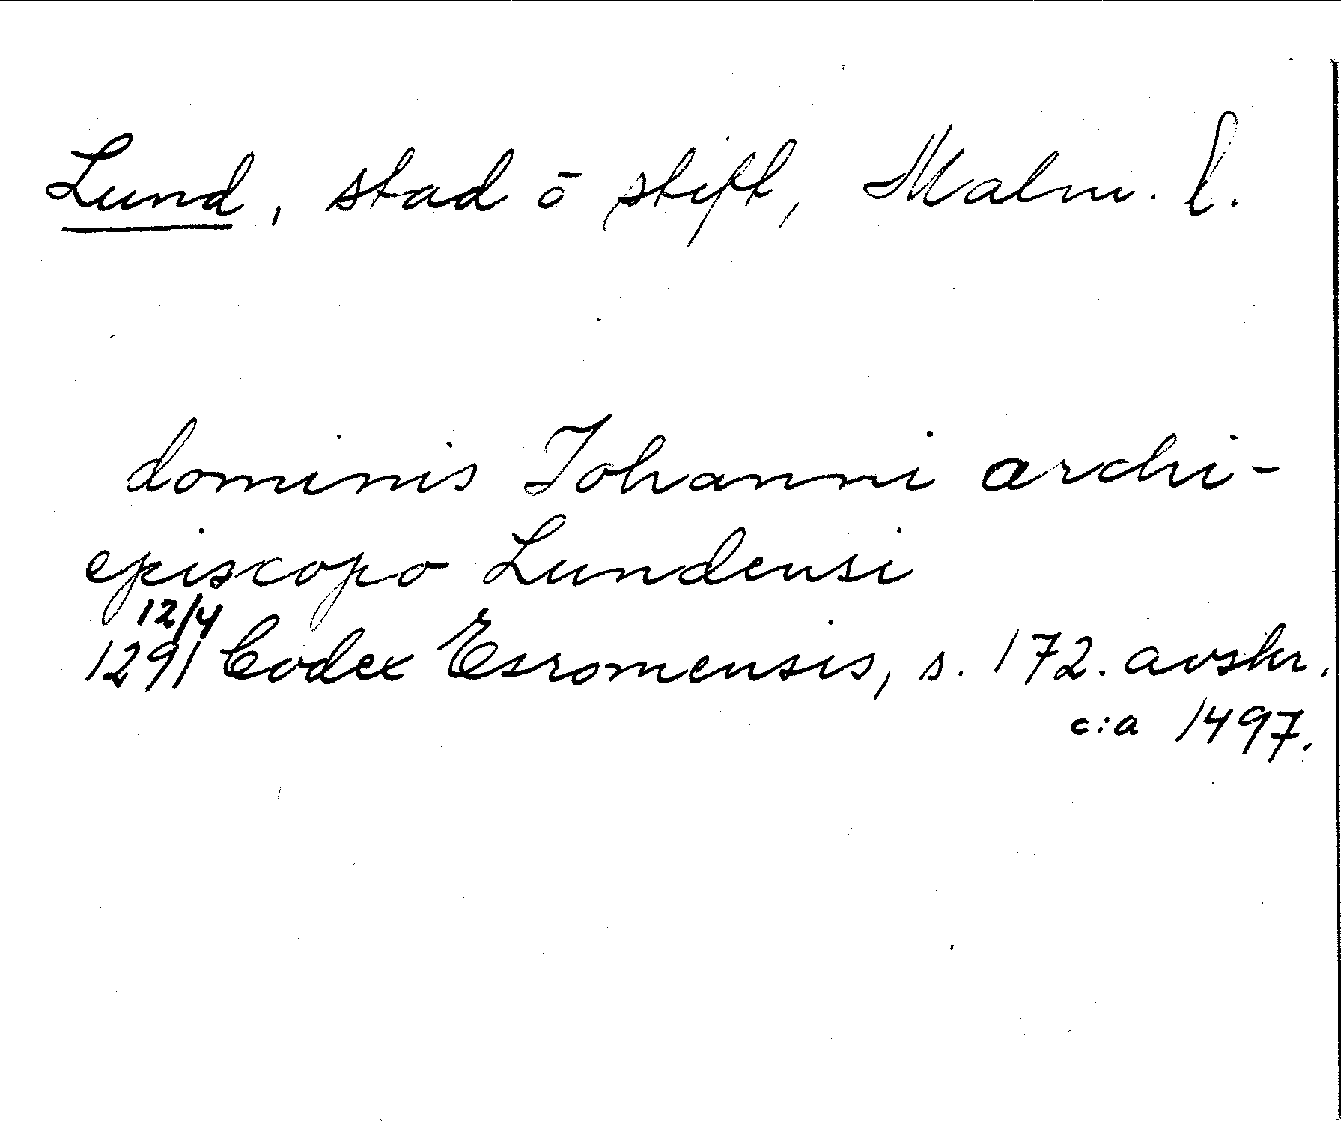 Lund, stad ō stift, Malm. l.
dominis Johanni archi-
episcopo Lundensi
12/4
1291 Codex Esromensis, s. 172. avskr.
c:a 1497.